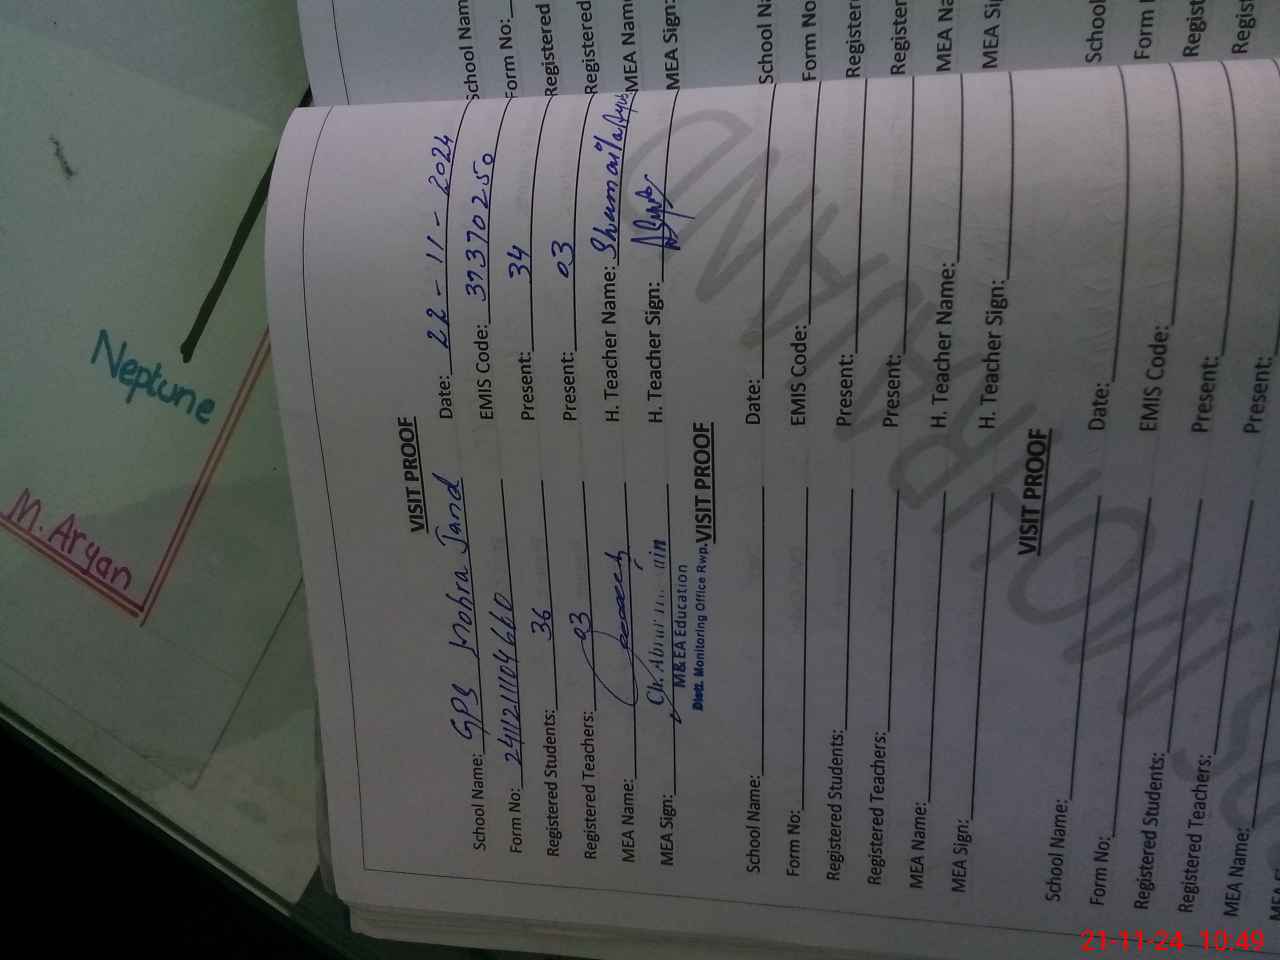 Neptune
M. Aryan
School Nam
Form No:
Registered
Registered
MEA Name
MEA Sign:
School Na
Form No
Register
Register
MEA Na
MEA Si
School
Form
Regist
Regist
VISIT PROOF
School Name: GPS Mohra Jand Date: 22-11-2024
Form No: EMIS Code: 37370250
Registered Students: 36 Present: 34
Registered Teachers: 03 Present: 03
MEA Name: H. Teacher Name: Shumaila Ayub
MEA Sign: H. Teacher Sign:
M& EA Education
Distt. Monitoring Office Rwp.
VISIT PROOF
School Name: Date:
Form No: EMIS Code:
Registered Students: Present:
Registered Teachers: Present:
MEA Name: H. Teacher Name:
MEA Sign: H. Teacher Sign:
VISIT PROOF
School Name: Date:
Form No: EMIS Code:
Registered Students: Present:
Registered Teachers: Present:
MEA Name:
21-11-24 10:49